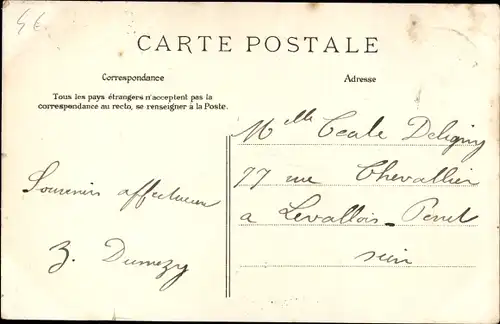 4 E
CARTE POSTALE
Correspondance
Adresse
Tous les pays étrangers n'acceptent pas la
correspondance au recto, se renseigner à la Poste.
Souvenir affectueux
Z. Dumezy
Mlle Cécile Deligny
77 rue Chevallier
a Levallois-Perret
sein